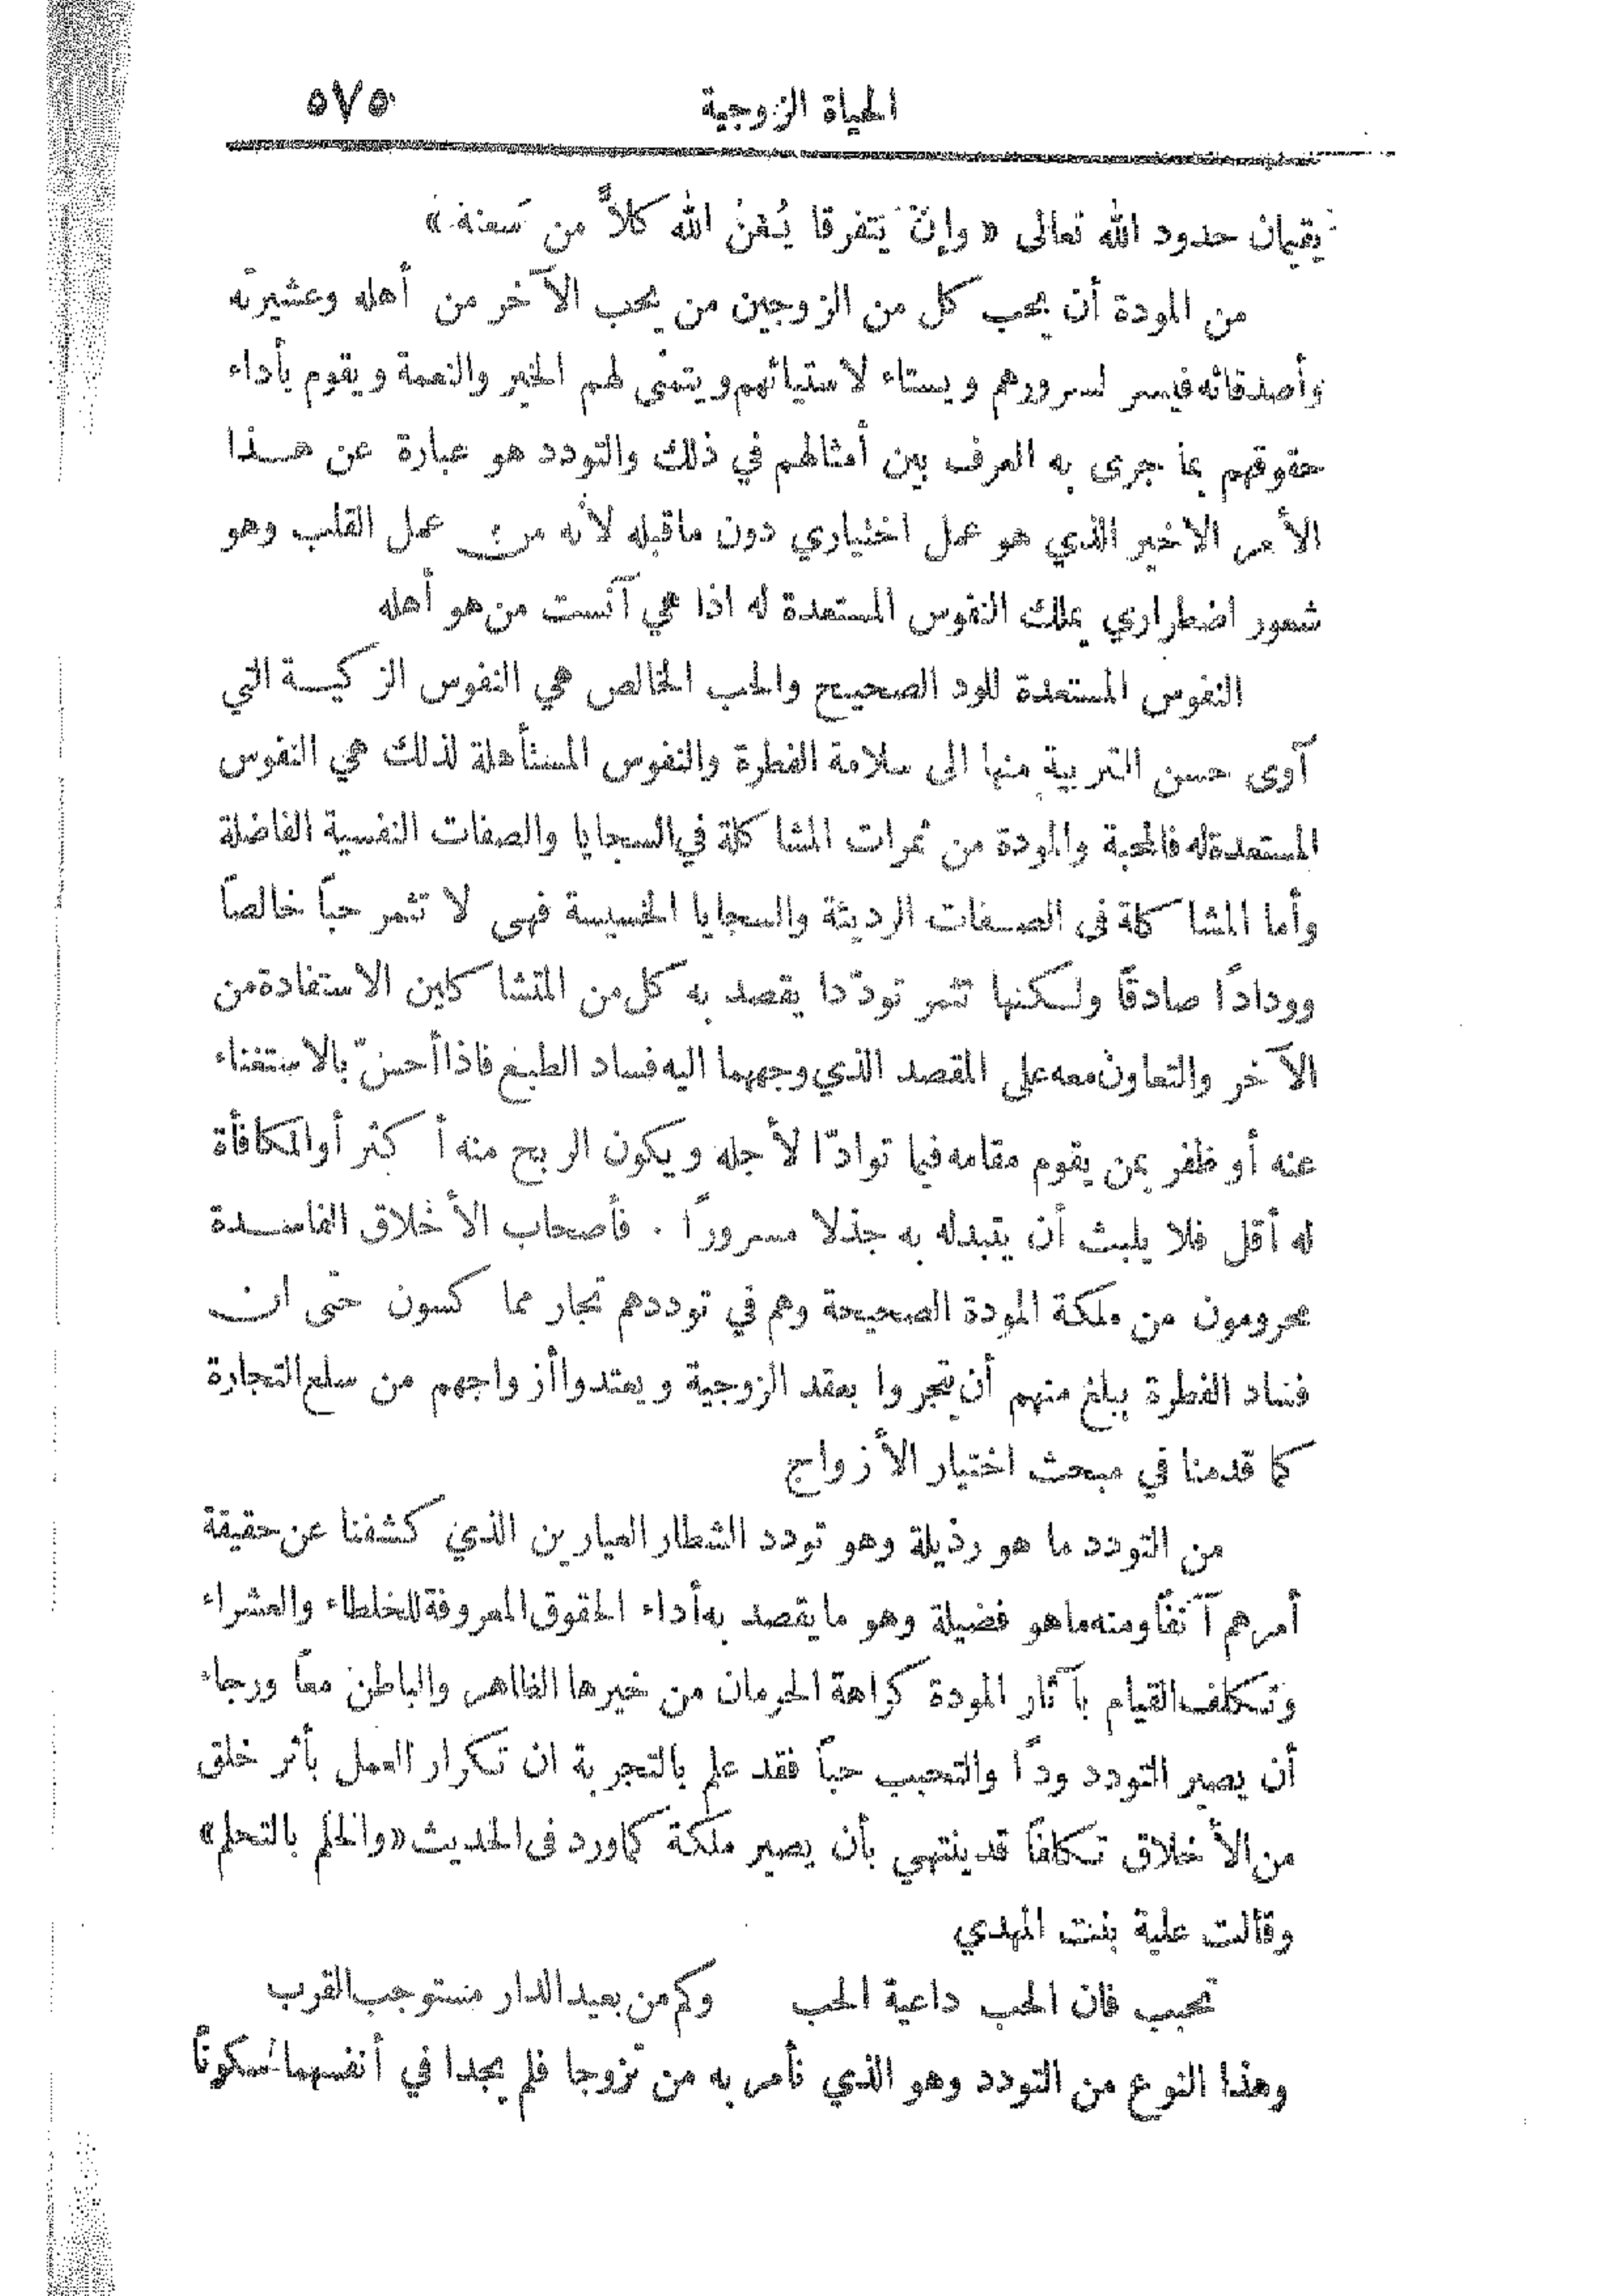 الحياة الزوجية ٥٧٥
يقيمان حدود الله تعالى « وإنْ يَتفرقا يُغنِ الله كلاًّ من سَعته »
من المودة أن يحب كل من الزوجين من يحب الآخر من أهله وعشيرته
وأصدقائه فيسر لسرورهم ويستاء لاستيائهم ويتمنى لهم الخير والنعمة ويقوم بأداء
حقوقهم بما جرى به العرف بين أمثالهم في ذلك والتودد هو عبارة عن هـذا
الأمر الاخير الذي هو عمل اختياري دون ماقبله لأنه من عمل القلب وهو
شعور اضطراري يملك النفوس المستعدة له اذا هي آنست من هو أهله
النفوس المستعدة للود الصحيح والحب الخالص هي النفوس الزكيـة التي
آوى حسن التربية منها الى سلامة الفطرة والنفوس المستأهلة لذلك هي النفوس
المستعدة له فالمحبة والمودة من ثمرات المشاكلة في السجايا والصفات النفسية الفاضلة
وأما المشاكلة فى الصـفات الرديئة والسجايا الخسيسة فهى لا تثمر حباً خالصاً
وودادًا صادقًا ولـكنها تثمر تودّدا يقصد به كل من المتشاكلين الاستفادة من
الآخر والتعاون معه على المقصد الذي وجههما اليه فساد الطبع فاذا أحسّ بالاستغناء
عنه أو ظفر بمن يقوم مقامه فيما توادّا لأجله ويكون الربح منه أكثر أو المكافأة
له أقل فلا يلبث أن يتبدله به جذلا مسرورًا . فأصحاب الأخلاق الفاسـدة
محرومون من ملكة المودة الصحيحة وهم في توددهم تجار مماكسون حتى ان
فساد الفطرة يبلغ منهم أن يتجروا بعقد الزوجية ويعتدوا أزواجهم من سلع التجارة
كما قدمنا في مبحث اختيار الأزواج
من التودد ما هو رذيلة وهو تودد الشطار العيارين الذين كشفنا عن حقيقة
أمرهم آنفًا ومنه ماهو فضيلة وهو ما يقصد به أداء الحقوق المعروفة للخلطاء والعشراء
وتـكلف القيام بآثار المودة كراهة الحرمان من خيرها الظاهر والباطن معًا ورجاء
أن يصير التودد ودًا والتحبب حباً فقد علم بالتجربة ان تـكرار العمل بأثر خلق
من الأخلاق تـكلفًا قد ينتهي بأن يصير ملكة كما ورد فى الحديث « والحلم بالتحلم »
وقالت علية بنت المهدي
تحبب فان الحب داعية الحب وكم من بعيد الدار مستوجب القرب
وهذا النوع من التودد وهو الذي نأمر به من تزوجا فلم يجدا في أنفسهما سكونًا